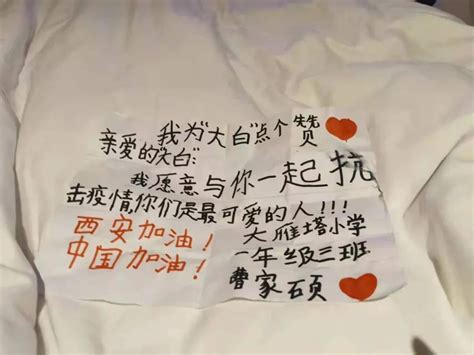 我为"大白"点个赞
亲爱的"大白":
我愿意与你一起抗
击疫情,你们是最可爱的人!!!
西安加油!
中国加油!
大雁塔小学
一年级三班
曹家硕